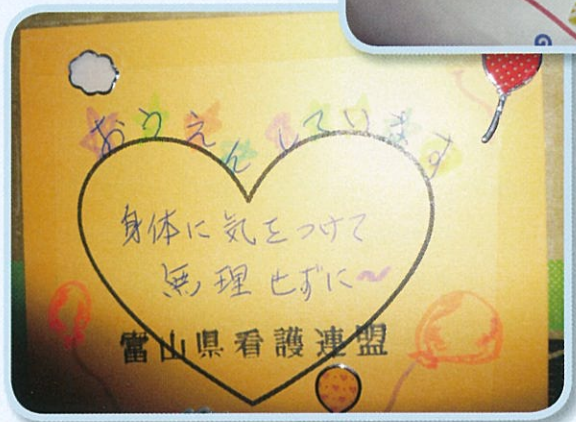 おうえんしています
身体に気をつけて
無理せずに〜
富山県看護連盟